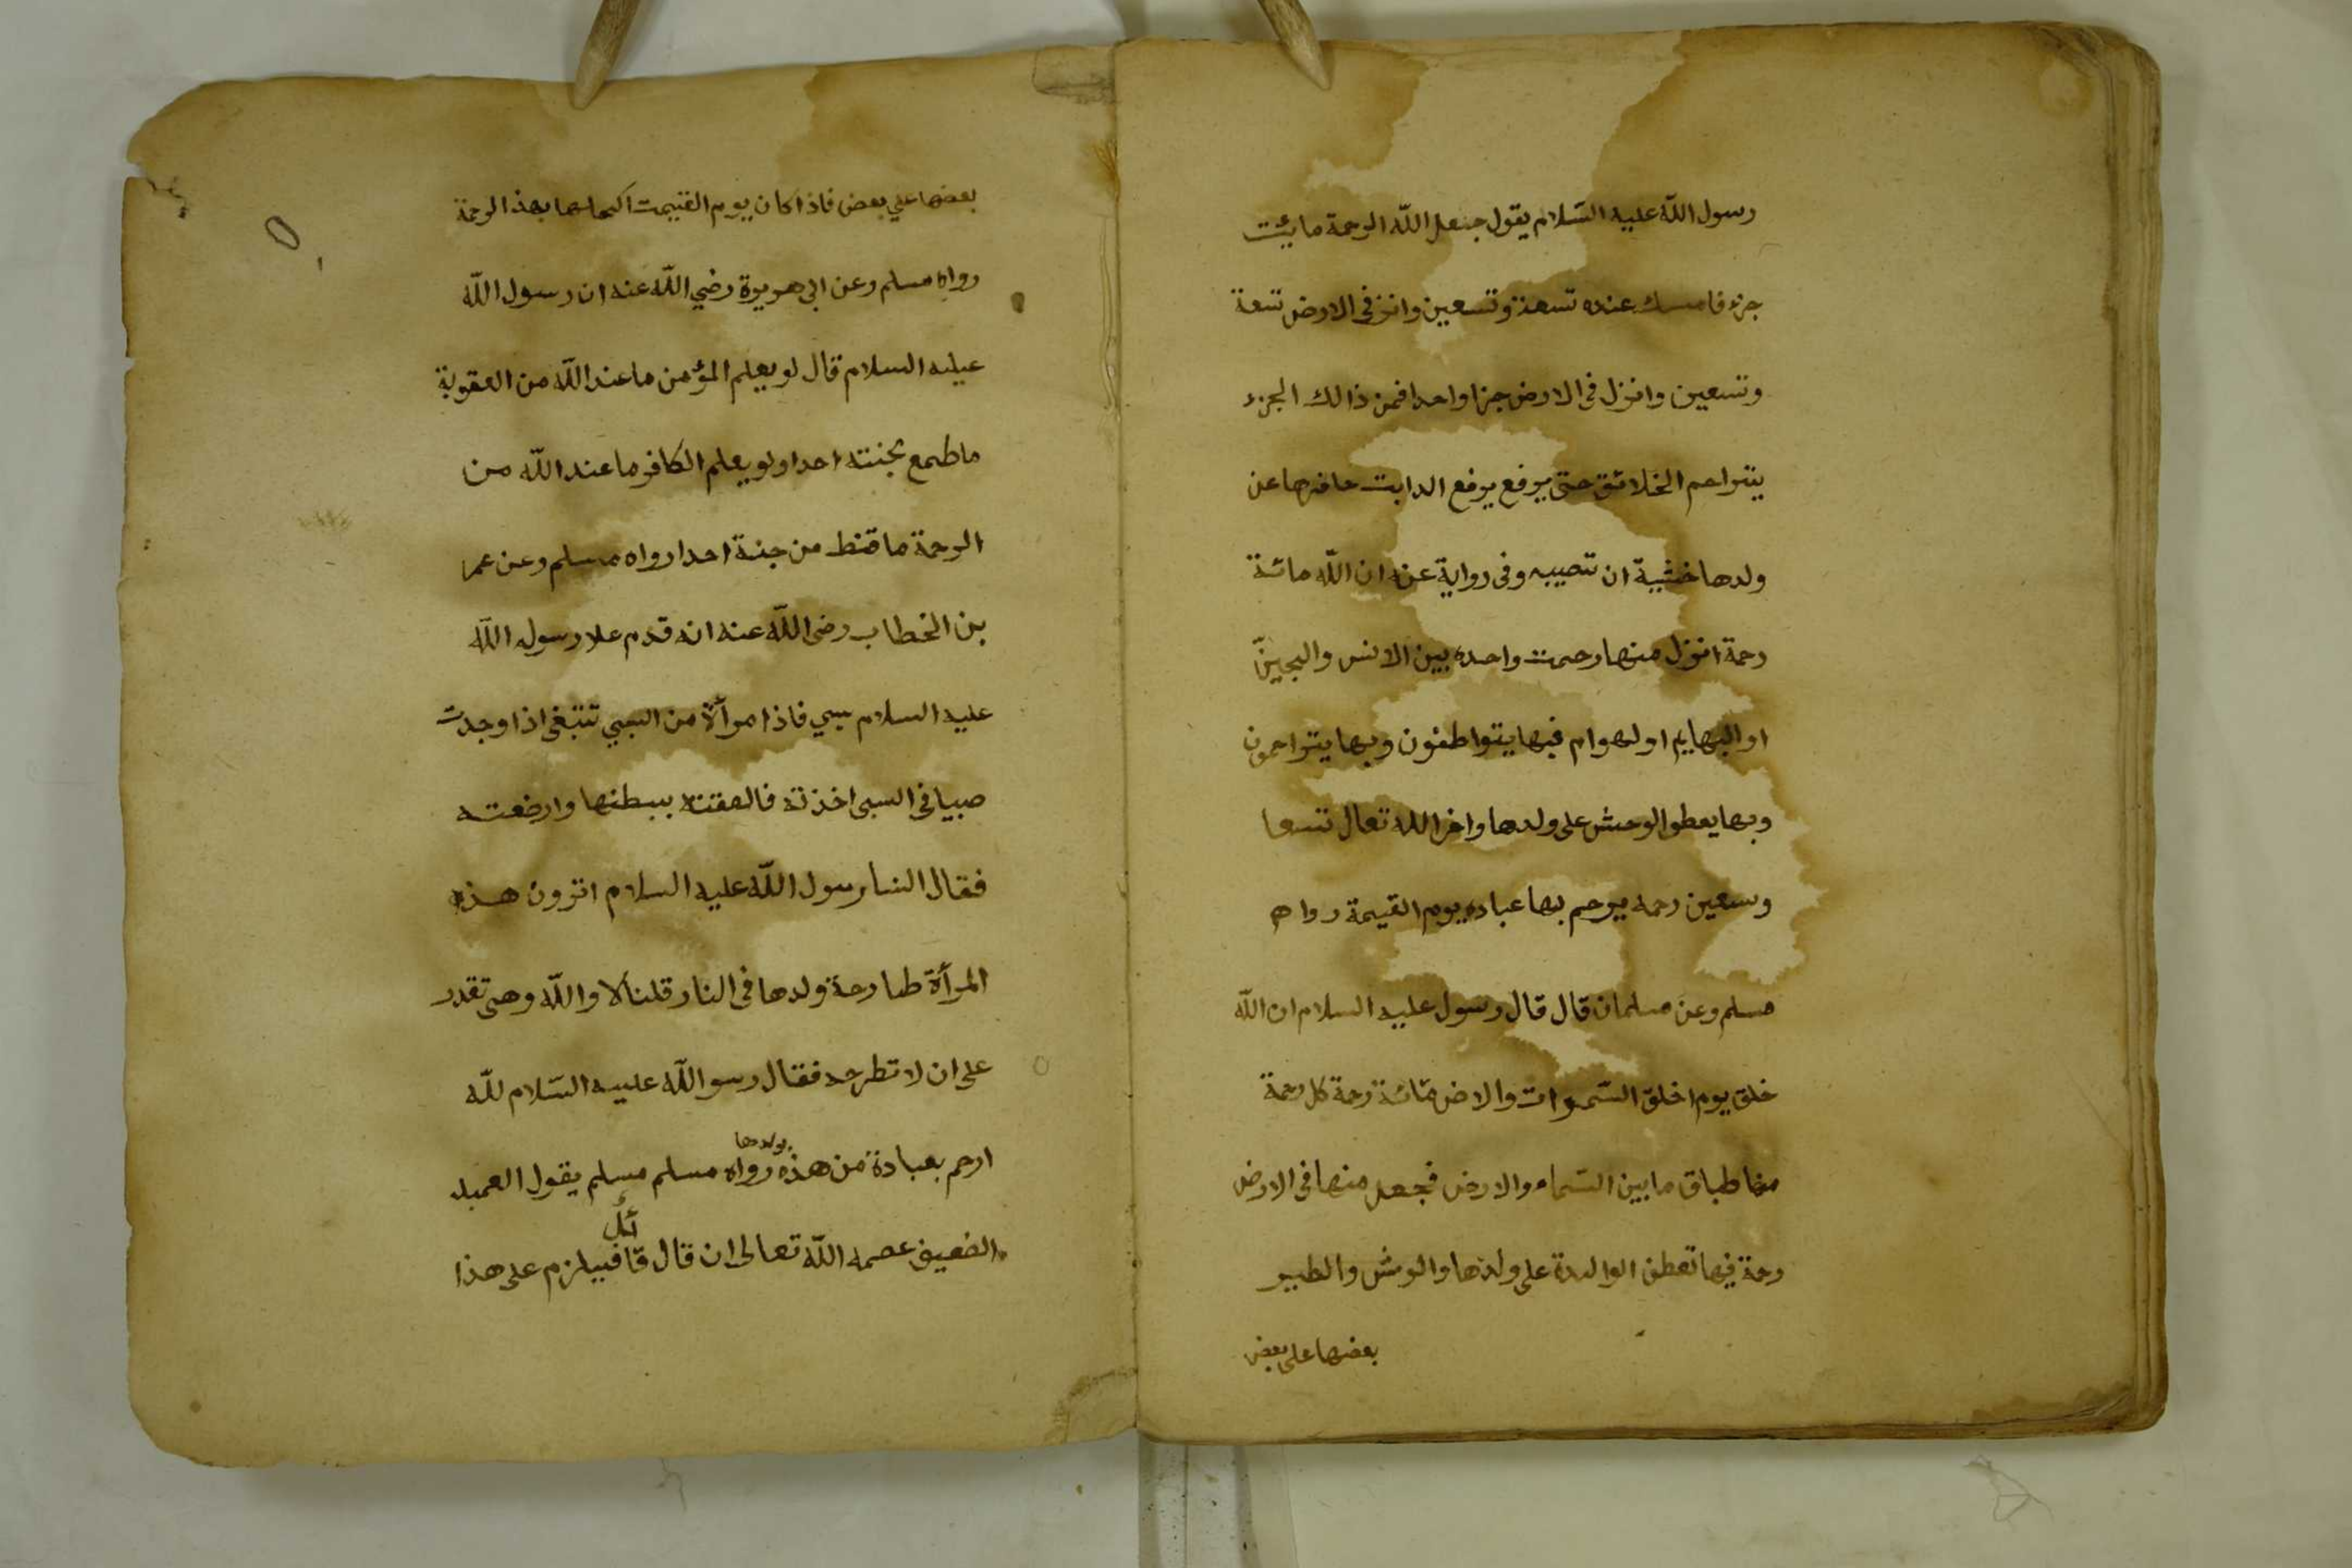 رسول اللّه عليه السّلام يقول جعل اللّه الرحمة مايئت
جزء فامسك عنده تسعة وتسعين وانز فى الارض تسعة
وتسعين وانزل فى الارض جزا واحدا فمن ذالك الجزء
يتراحم الخلائق حتى يرفع يرفع الدابت حافرها عن
ولدها خشية ان تصيبه وفى رواية عنه ان اللّه مائة
رحمة انزل منها رحمت واحدة بين الانس والجينّ
او البهايم او لهوام فبها يتواطفون وبها يتراحمون
وبها يعطو الوحش على ولدها واخر اللّه تعال تسعا
وسعين رحمه يرحم بها عباده يوم القيمة رواه
مسلم وعن مسلمان قال قال رسول عليه السلام ان اللّه
خلق يوم اخلق السّموات والاض مّائة رحمة كل رحمة
طباق مابين السّماء والارض فجعل منها فى الارض
رحمة فيها تعطف الوالدة على ولدها والوش والطير
بعضها على بعض
بعضها علي بعض فاذا كان يوم القييمت اكملها بهذ الرحمة
رواه مسلم وعن ابى هويرة رضي اللّه عنه ان رسول اللّه
عيله السلام قال لو يعلم المؤمن ما عند اللّه من العقوبة
ما طمع بجنته احدا ولو يعلم الكافر ما عند اللّه من
الرحمة ما قنط من جنة احدا رواه مسلم وعن عمر
بن الخطاب رضى اللّه عنه انه قدم علا رسول اللّه
عليه السلام بسي فاذا امرأة من السبي تتبغى اذا وجدت
صبيا فى السبى اخذته فالصقته ببطنها وارضعته
فقال النا رسول اللّه عليه السلام اترون هذه
المرأة طارحة ولدها فى النار قلنا لا واللّه وهى تقدر
على ان لا تطرحه فقال رسو اللّه عليه السّلام للّه
ارحم بعبادة من هذه بولدها رواه مسلم مسلم يقول العبد
الضعيف عصمه اللّه تعالى ان قال قائل فيلزم على هذا